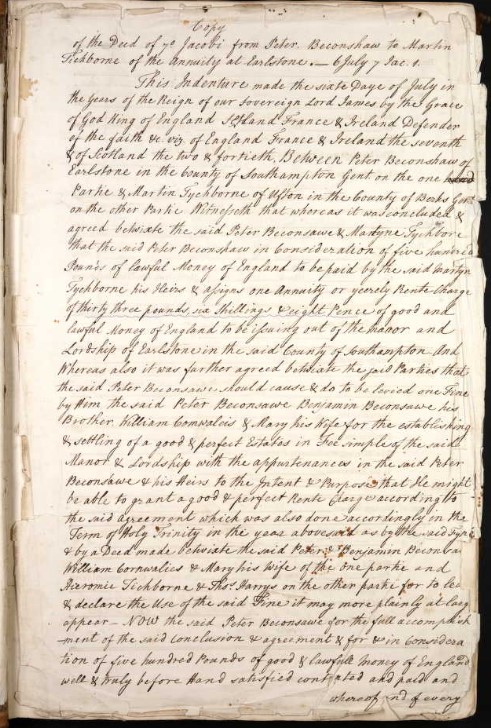 Copy
of the Deed of 7º Jacobi from Peter Beconshaw to Martin
Tichborne of the Annuity at Earlstone. — 6 July 7 Jac. 1.
This Indenture made the sixte Daye of July in
the Years of the Reign of our Sovereign Lord James by the Grace
of God King of England Scotland France & Ireland Defender
of the faith &c viz of England France & Ireland the seventh
& of Scotland the two & fortieth. Between Peter Beconshaw of
Earlstone in the County of Southampton Gent on the one
Partie & Martin Tychborne of Ufton in the County of Berks Gent
on the other Partie Witnesseth that whereas it was concluded &
agreed betwixte the said Peter Beconsawe & Martyne Tychborne
that the said Peter Beconshaw in Consideration of five hundred
Pounds of lawful Money of England to be paid by the said Martyn
Tychborne his Heirs & assigns one Annuity or yeerely Rente Charge
of thirty three pounds six shillings & eight Pence of good and
lawful Money of England to be issuing out of the Manor and
Lordship of Earlstone in the said County of Southampton And
Whereas also it was further agreed betwixte the said Parties that
the said Peter Beconsawe should cause & do to be levied one Fine
by Him the said Peter Beconsawe Benjamin Beconsawe his
Brother William Cornwaleis & Mary his Wife for the establishing
& settling of a good & perfect Estates in Fee simple of the said
Manor & Lordship with the appurtenances in the said Peter
Beconsawe & his Heirs to the Intent & Purpose that He might
be able to grant a good & perfect Rente Charge according to
the said agreement which was also done accordingly in the
Term of Holy Trinity in the yaar abovesaid as by the said Fyne
& by a Deed made betwixte the said Peter & Benjamin Beconsa
William Cornwalies & Mary his Wife of the one partie and
Tichborne & Thos. Harrys on the other partie for to lea
& declare the Use of the said Fine it may more plainly at larg
appear — NOW the said Peter Beconsawe for the full accomplish
-ment of the said Conclusion & agreement & for & in Considera
tion of five hundred Pounds of good & lawfull Money of England
well & truly before Hand satisfied contented and paid and
whereof and of every